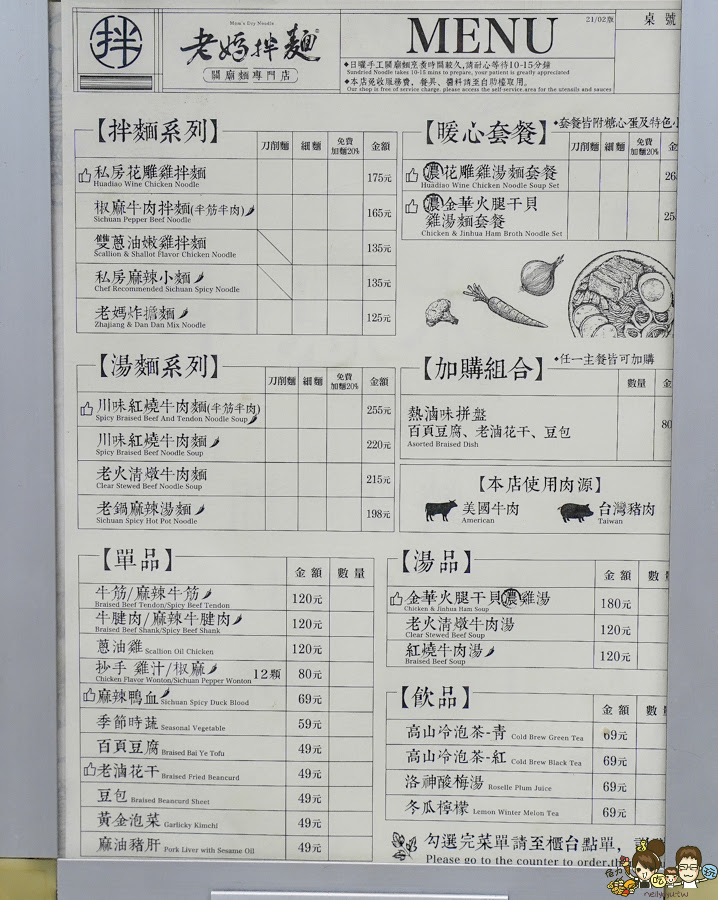 拌
Mom's Dry Noodle
老媽拌麵
關廟麵專門店
MENU
21/02版
桌號
◆日曬手工關廟麵烹煮時間較久,請耐心等待10-15分鐘
Sundried Noodle takes 10-15 mins to prepare, your patient is greatly appreciated
◆本店免收服務費,餐具、醬料請至自助檯取用。
Our shop is free of service charge. please access the self service area for the utensils and sauces
【拌麵系列】
刀削麵 細麵 免費加麵20% 金額
私房花雕雞拌麵 175元
Huadiao Wine Chicken Noodle
椒麻牛肉拌麵(半筋半肉) 165元
Sichuan Pepper Beef Noodle
雙蔥油嫩雞拌麵 135元
Scallion & Shallot Flavor Chicken Noodle
私房麻辣小麵 135元
Chef Recommended Sichuan Spicy Noodle
老媽炸擔麵 125元
Zhajiang & Dan Dan Mix Noodle
【暖心套餐】
◆套餐皆附糖心蛋及特色小
刀削麵 細麵 免費加麵20% 金
濃花雕雞湯麵套餐 26
Huadiao Wine Chicken Noodle Soup Set
濃金華火腿干貝
雞湯麵套餐 25
Chicken & Jinhua Ham Broth Noodle Set
【湯麵系列】
刀削麵 細麵 免費加麵20% 金額
川味紅燒牛肉麵(半筋半肉) 255元
Spicy Braised Beef And Tendon Noodle Soup
川味紅燒牛肉麵 220元
Spicy Braised Beef Noodle Soup
老火清燉牛肉麵 215元
Clear Stewed Beef Noodle Soup
老鍋麻辣湯麵 198元
Sichuan Spicy Hot Pot Noodle
【加購組合】
◆任一主餐皆可加購
數量 金
熱滷味拼盤
百頁豆腐、老滷花干、豆包 80
Asorted Braised Dish
【本店使用肉源】
美國牛肉
American
台灣豬肉
Taiwan
【單品】
金額 數量
牛筋/麻辣牛筋 120元
Braised Beef Tendon/Spicy Beef Tendon
牛腱肉/麻辣牛腱肉 120元
Braised Beef Shank/Spicy Beef Shank
蔥油雞 Scallion Oil Chicken 120元
抄手 雞汁/椒麻 12顆 80元
Chicken Flavor Wonton/Sichuan Pepper Wonton
麻辣鴨血 Sichuan Spicy Duck Blood 69元
季節時蔬 Seasonal Vegetable 59元
百頁豆腐 Braised Bai Ye Tofu 49元
老滷花干 Braised Fried Beancurd 49元
豆包 Braised Beancurd Sheet 49元
黃金泡菜 Garlicky Kimchi 49元
麻油豬肝 Pork Liver with Sesame Oil 49元
【湯品】
金額 數
金華火腿干貝濃雞湯 180元
Chicken & Jinhua Ham Soup
老火清燉牛肉湯 120元
Clear Stewed Beef Soup
紅燒牛肉湯 120元
Braised Beef Soup
【飲品】
金額 數
高山冷泡茶-青 Cold Brew Green Tea 69元
高山冷泡茶-紅 Cold Brew Black Tea 69元
洛神酸梅湯 Roselle Plum Juice 69元
冬瓜檸檬 Lemon Winter Melon Tea 69元
勾選完菜單請至櫃台點單,
Please go to the counter to order,